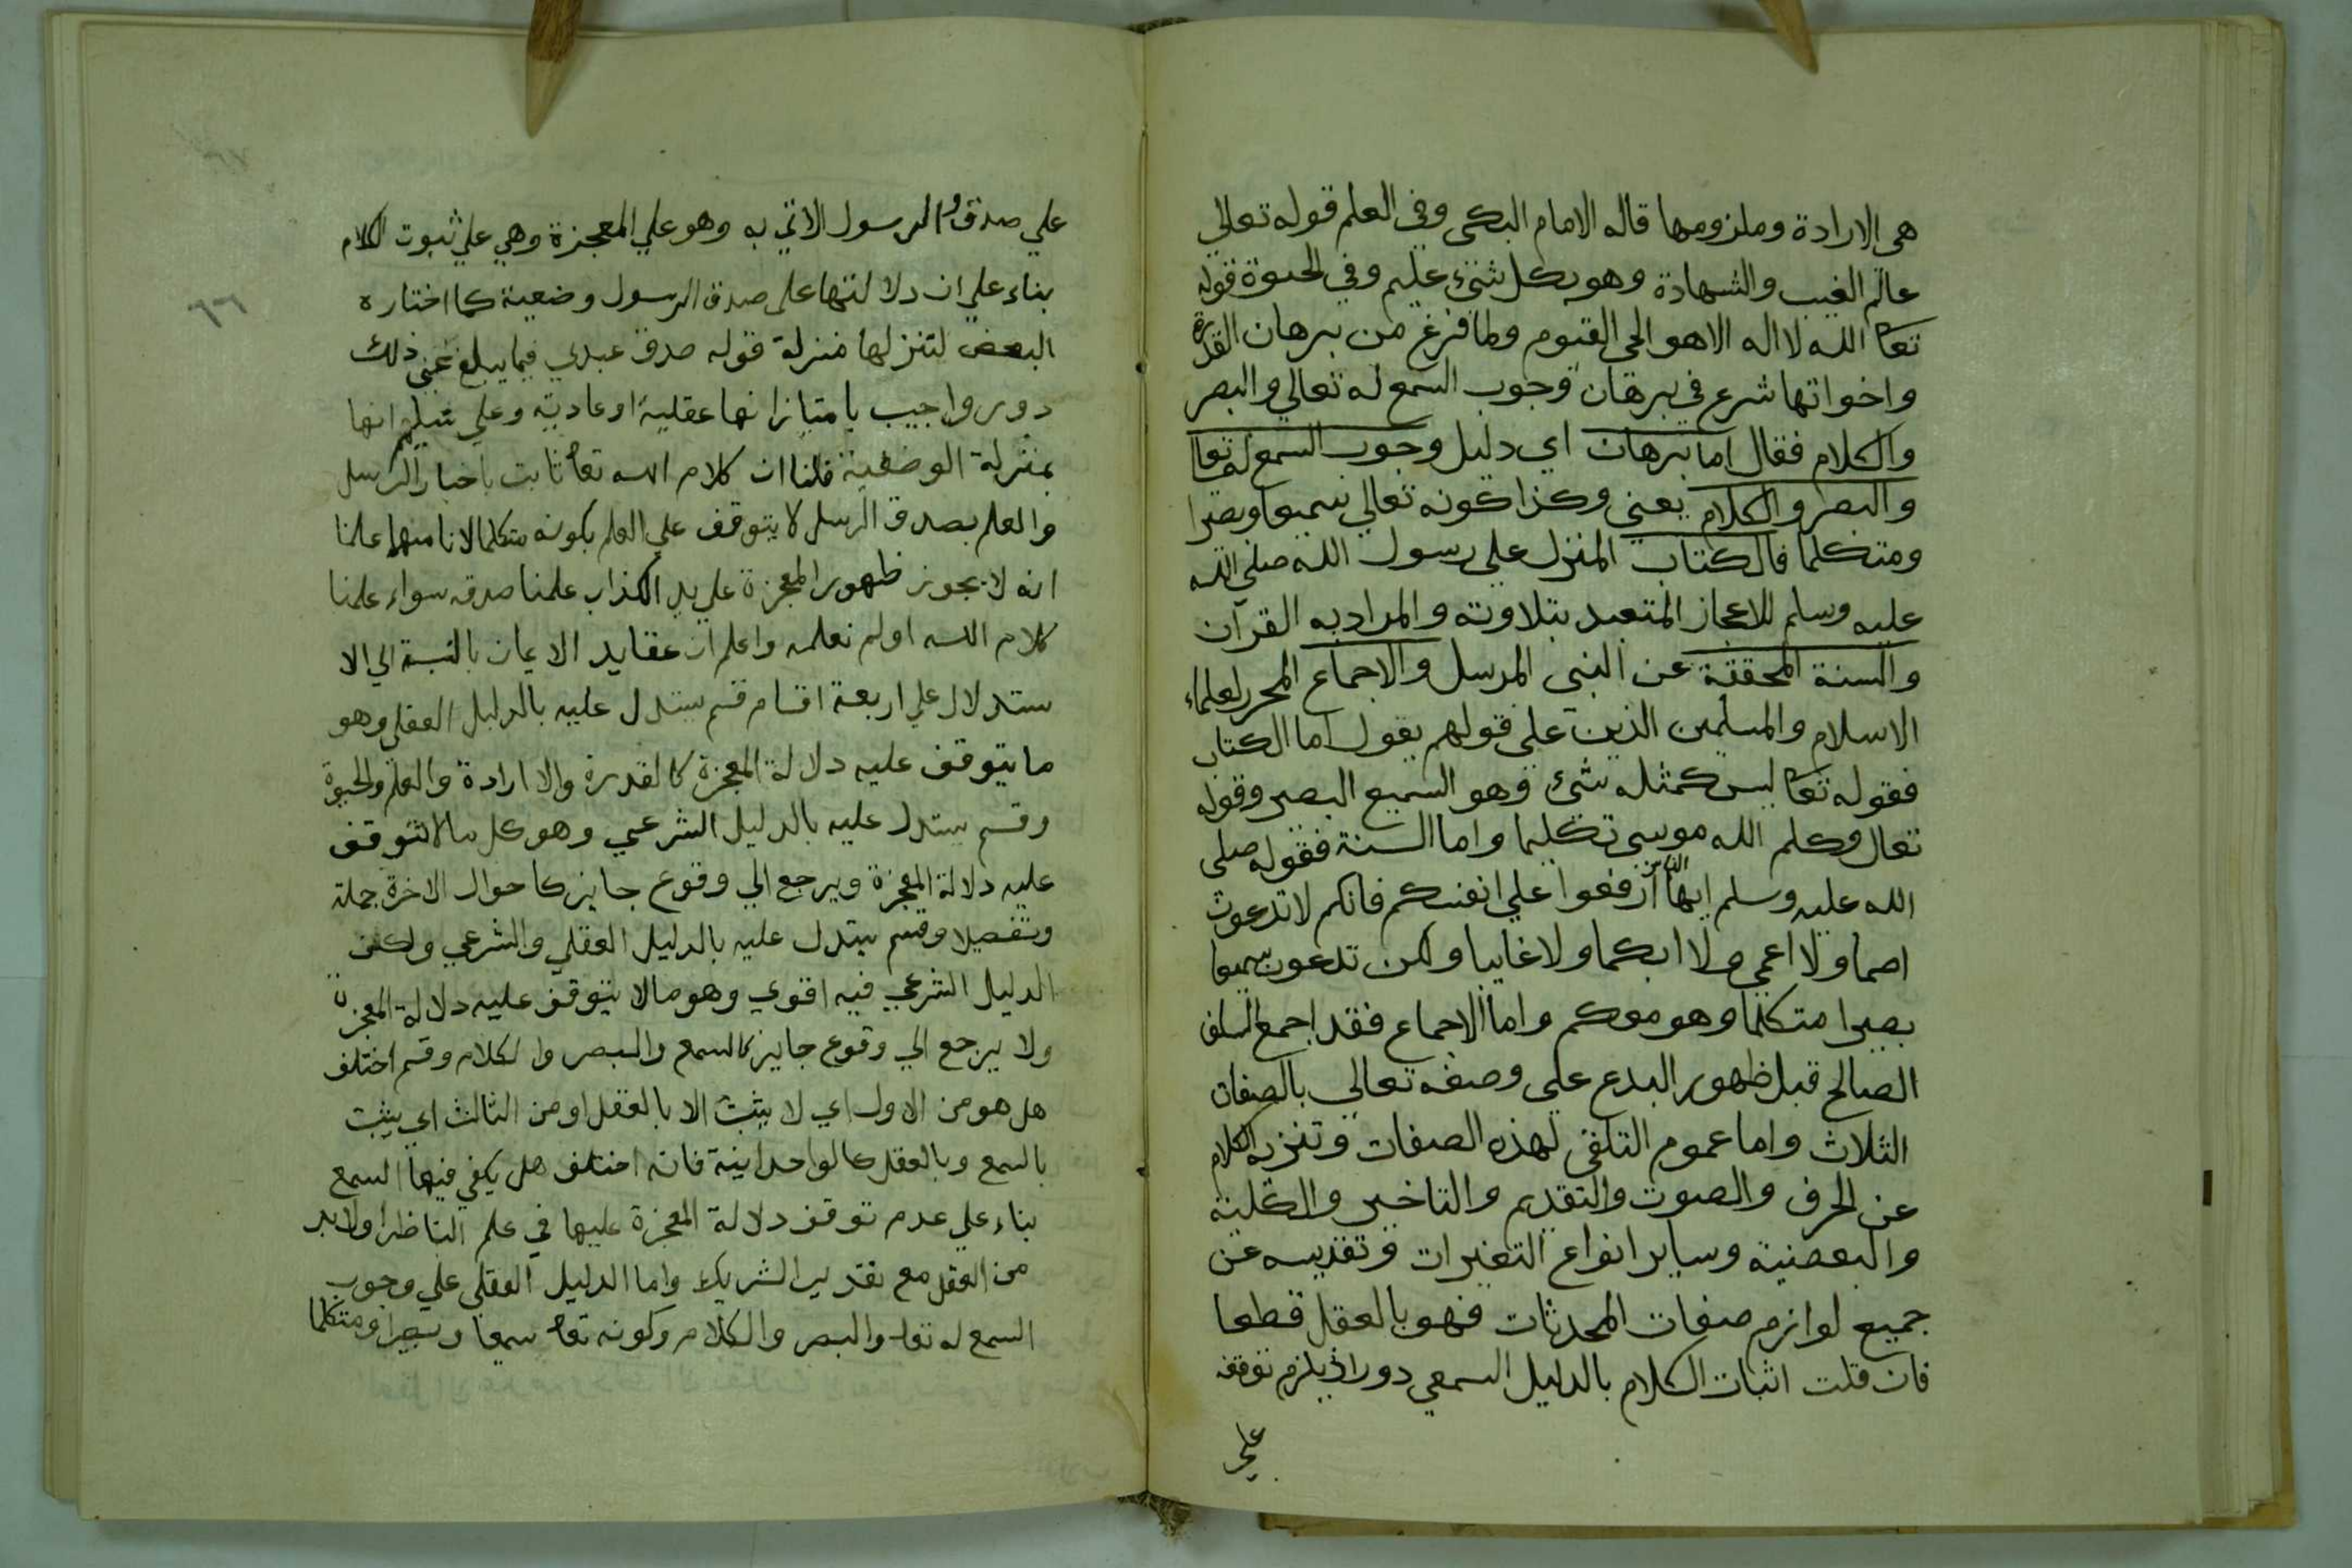 هي الارادة وملزومها قاله الامام البكى وفى العلم قوله تعالي
عالم الغيب والشهادة وهو بكل شئ عليم وفي الحيوة قوله
تعا الله لا اله الا هو الحى القيوم ولما فرغ من برهان القدرة
واخواتها شرع في برهان وجوب السمع له تعالي والبصر
والكلام فقال اما برهان اي دليل وجوب السمع له تعا
والبصر والكلام يعني وكذا كونه تعالي سميعا وبصيرا
ومتكلما فالكتاب المنزل علي رسول الله صلي الله
عليه وسلم للاعجاز المتعبد بتلاوته والمراد به القرآن
والسنة المحققة عن النبي المرسل والاجماع المحرر لعلماء
الاسلام والمسلمين الذين علي قولهم يقول اما الكتاب
فقوله تعا ليس كمثله شئ وهو السميع البصير وقوله
تعال وكلم الله موسي تكليما واما السنة فقوله صلى
الله عليه وسلم ايها الناس ارفعوا علي انفسكم فانكم لا تدعون
اصما ولا اعمي ولا ابكما ولا غايبا ولكن تدعون سميعا
بصيرا متكلما وهو معكم واما الاجماع فقد اجمع السلف
الصالح قبل ظهور البدع على وصفه تعالي بالصفات
الثلاث واما عموم التلقى لهذه الصفات وتنزيه الكلام
عن الحرف والصوت والتقديم والتاخير والكلية
والبعضية وساير انواع التغيرات وتقديسه عن
جميع لوازم صفات المحدثات فهو بالعقل قطعا
فان قلت اثبات الكلام بالدليل السمعي دور اذ يلزم توقفه
علي
علي صدق الرسول الاتي به وهو علي المعجزة وهي علي ثبوت الكلام
بناء علي ان دلالتها على صدق الرسول وضعية كما اختاره
البعض لتنزلها منزلة قوله صدق عبدي فيما يبلغ عني ذلك
دور واجيب بامتياز انها عقلية او عادية وعلي تسليم انها
بمنزلة الوضعية قلنا ان كلام الله تعا ثابت باخبار الرسل
والعلم بصدق الرسل لا يتوقف علي العلم بكونه متكلما لانا مهما علمنا
انه لا يجوز ظهور المعجزة علي يد الكذاب علمنا صدقه سواء علمنا
كلام الله اولم نعلمه واعلم ان عقايد الايمان بالنسبة الي الا
ستدلال علي اربعة اقسام قسم يستدل عليه بالدليل العقلي وهو
ما يتوقف عليه دلالة المعجزة كالقدرة والارادة والعلم والحيوة
وقسم يستدل عليه بالدليل الشرعي وهو كل ما لا يتوقف
عليه دلالة المعجزة ويرجع الي وقوع جايز كاحوال الاخرة جملة
وتفصيلا وقسم يستدل عليه بالدليل العقلي والشرعي ولكن
الدليل الشرعي فيه اقوي وهو ما لا يتوقف عليه دلالة المعجزة
ولا يرجع الي وقوع جايز كالسمع والبصر والكلام وقسم اختلف
هل هو من الاول اي لا يثبت الا بالعقل او من الثالث اي يثبت
بالسمع وبالعقل كالواحدانية فانه اختلف هل يكفي فيها السمع
بناء علي عدم توقف دلالة المعجزة عليها في علم الناظر او لا بد
من العقل مع تقدير الشريك واما الدليل العقلي علي وجوب
السمع له تعا والبصر والكلام وكونه تعا سميعا وبصيرا ومتكلما
٦٦